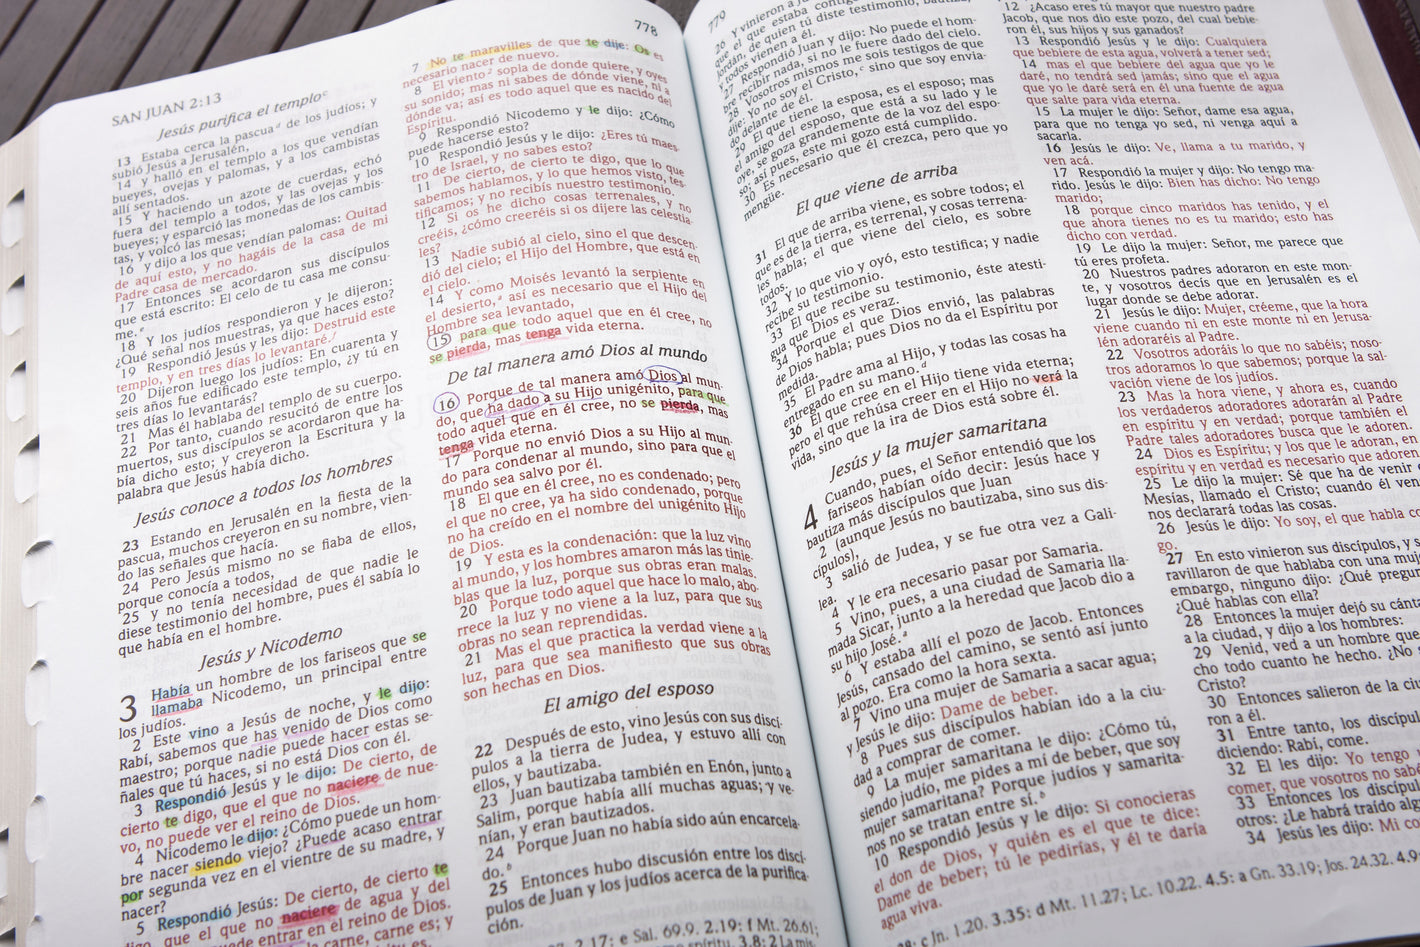 778
SAN JUAN 2:13
Jesús purifica el templo
13 Estaba cerca la pascua de los judíos; y
subió Jesús a Jerusalén,
14 y halló en el templo a los que vendían
bueyes, ovejas y palomas, y a los cambistas
allí sentados.
15 Y haciendo un azote de cuerdas, echó
fuera del templo a todos, y las ovejas y los
bueyes; y esparció las monedas de los cambis-
tas, y volcó las mesas;
16 y dijo a los que vendían palomas: Quitad
de aquí esto, y no hagáis de la casa de mi
Padre casa de mercado.
17 Entonces se acordaron sus discípulos
que está escrito: El celo de tu casa me consu-
me.e
18 Y los judíos respondieron y le dijeron:
¿Qué señal nos muestras, ya que haces esto?
19 Respondió Jesús y les dijo: Destruid este
templo, y en tres días lo levantaré.f
20 Dijeron luego los judíos: En cuarenta y
seis años fue edificado este templo, ¿y tú en
tres días lo levantarás?
21 Mas él hablaba del templo de su cuerpo.
22 Por tanto, cuando resucitó de entre los
muertos, sus discípulos se acordaron que ha-
bía dicho esto; y creyeron la Escritura y la
palabra que Jesús había dicho.
Jesús conoce a todos los hombres
23 Estando en Jerusalén en la fiesta de la
pascua, muchos creyeron en su nombre, vien-
do las señales que hacía.
24 Pero Jesús mismo no se fiaba de ellos,
porque conocía a todos,
25 y no tenía necesidad de que nadie le
diese testimonio del hombre, pues él sabía lo
que había en el hombre.
Jesús y Nicodemo
3 Había un hombre de los fariseos que se
llamaba Nicodemo, un principal entre
los judíos.
2 Este vino a Jesús de noche, y le dijo:
Rabí, sabemos que has venido de Dios como
maestro; porque nadie puede hacer estas se-
ñales que tú haces, si no está Dios con él.
3 Respondió Jesús y le dijo: De cierto, de
cierto te digo, que el que no naciere de nue-
vo, no puede ver el reino de Dios.
4 Nicodemo le dijo: ¿Cómo puede un hom-
bre nacer siendo viejo? ¿Puede acaso entrar
por segunda vez en el vientre de su madre, y
nacer?
5 Respondió Jesús: De cierto, de cierto te
digo, que el que no naciere de agua y del
entrar en el reino de Dios.
la carne, carne es; y
7 No te maravilles de que te dije: Os es
necesario nacer de nuevo.
8 El viento sopla de donde quiere, y oyes
su sonido; mas ni sabes de dónde viene, ni a
dónde va; así es todo aquel que es nacido del
Espíritu.
9 Respondió Nicodemo y le dijo: ¿Cómo
puede hacerse esto?
10 Respondió Jesús y le dijo: ¿Eres tú maes-
tro de Israel, y no sabes esto?
11 De cierto, de cierto te digo, que lo que
sabemos hablamos, y lo que hemos visto, tes-
tificamos; y no recibís nuestro testimonio.
12 Si os he dicho cosas terrenales, y no
creéis, ¿cómo creeréis si os dijere las celestia-
les?
13 Nadie subió al cielo, sino el que descen-
dió del cielo; el Hijo del Hombre, que está en
el cielo.
14 Y como Moisés levantó la serpiente en
el desierto,a así es necesario que el Hijo del
Hombre sea levantado,
15 para que todo aquel que en él cree, no
se pierda, mas tenga vida eterna.
De tal manera amó Dios al mundo
16 Porque de tal manera amó Dios al mun-
do, que ha dado a su Hijo unigénito, para que
todo aquel que en él cree, no se pierda, mas
tenga vida eterna.
17 Porque no envió Dios a su Hijo al mun-
do para condenar al mundo, sino para que el
mundo sea salvo por él.
18 El que en él cree, no es condenado; pero
el que no cree, ya ha sido condenado, porque
no ha creído en el nombre del unigénito Hijo
de Dios.
19 Y esta es la condenación: que la luz vino
al mundo, y los hombres amaron más las tinie-
blas que la luz, porque sus obras eran malas.
20 Porque todo aquel que hace lo malo, abo-
rrece la luz y no viene a la luz, para que sus
obras no sean reprendidas.
21 Mas el que practica la verdad viene a la
luz, para que sea manifiesto que sus obras
son hechas en Dios.
El amigo del esposo
22 Después de esto, vino Jesús con sus discí-
pulos a la tierra de Judea, y estuvo allí con
ellos, y bautizaba.
23 Juan bautizaba también en Enón, junto a
Salim, porque había allí muchas aguas; y ve-
nían, y eran bautizados.
24 Porque Juan no había sido aún encarcela-
do.b
25 Entonces hubo discusión entre los discí-
pulos de Juan y los judíos acerca de la purifica-
ción.
2.17; e Sal. 69.9. 2.19: f Mt. 26.61;
779
26 Y vinieron a
que el que estaba
Jordán, de quien tú diste testimonio,
y todos vienen a él.
27 Respondió Juan y dijo: No puede el hom-
bre recibir nada, si no le fuere dado del cielo.
28 Vosotros mismos me sois testigos de que
dije: Yo no soy el Cristo,c sino que soy envia-
do delante de él.
29 El que tiene la esposa, es el esposo; mas
el amigo del esposo, que está a su lado y le
oye, se goza grandemente de la voz del espo-
so; así pues, este mi gozo está cumplido.
30 Es necesario que él crezca, pero que yo
mengüe.
El que viene de arriba
31 El que de arriba viene, es sobre todos; el
que es de la tierra, es terrenal, y cosas terrena-
les habla; el que viene del cielo, es sobre
todos.
32 Y lo que vio y oyó, esto testifica; y nadie
recibe su testimonio.
33 El que recibe su testimonio, éste atesti-
gua que Dios es veraz.
34 Porque el que Dios envió, las palabras
de Dios habla; pues Dios no da el Espíritu por
medida.
35 El Padre ama al Hijo, y todas las cosas ha
entregado en su mano.d
36 El que cree en el Hijo tiene vida eterna;
pero el que rehúsa creer en el Hijo no verá la
vida, sino que la ira de Dios está sobre él.
Jesús y la mujer samaritana
4 Cuando, pues, el Señor entendió que los
fariseos habían oído decir: Jesús hace y
bautiza más discípulos que Juan
2 (aunque Jesús no bautizaba, sino sus dis-
cípulos),
3 salió de Judea, y se fue otra vez a Gali-
lea.
4 Y le era necesario pasar por Samaria.
5 Vino, pues, a una ciudad de Samaria lla-
mada Sicar, junto a la heredad que Jacob dio a
su hijo José.a
6 Y estaba allí el pozo de Jacob. Entonces
Jesús, cansado del camino, se sentó así junto
al pozo. Era como la hora sexta.
7 Vino una mujer de Samaria a sacar agua;
y Jesús le dijo: Dame de beber.
8 Pues sus discípulos habían ido a la ciu-
dad a comprar de comer.
9 La mujer samaritana le dijo: ¿Cómo tú,
siendo judío, me pides a mí de beber, que soy
mujer samaritana? Porque judíos y samarita-
nos no se tratan entre sí.b
10 Respondió Jesús y le dijo: Si conocieras
el don de Dios, y quién es el que te dice:
Dame de beber; tú le pedirías, y él te daría
agua viva.
12 ¿Acaso eres tú mayor que nuestro padre
Jacob, que nos dio este pozo, del cual bebie-
ron él, sus hijos y sus ganados?
13 Respondió Jesús y le dijo: Cualquiera
que bebiere de esta agua, volverá a tener sed;
14 mas el que bebiere del agua que yo le
daré, no tendrá sed jamás; sino que el agua
que yo le daré será en él una fuente de agua
que salte para vida eterna.
15 La mujer le dijo: Señor, dame esa agua,
para que no tenga yo sed, ni venga aquí a
sacarla.
16 Jesús le dijo: Ve, llama a tu marido, y
ven acá.
17 Respondió la mujer y dijo: No tengo ma-
rido. Jesús le dijo: Bien has dicho: No tengo
marido;
18 porque cinco maridos has tenido, y el
que ahora tienes no es tu marido; esto has
dicho con verdad.
19 Le dijo la mujer: Señor, me parece que
tú eres profeta.
20 Nuestros padres adoraron en este mon-
te, y vosotros decís que en Jerusalén es el
lugar donde se debe adorar.
21 Jesús le dijo: Mujer, créeme, que la hora
viene cuando ni en este monte ni en Jerusa-
lén adoraréis al Padre.
22 Vosotros adoráis lo que no sabéis; noso-
tros adoramos lo que sabemos; porque la sal-
vación viene de los judíos.
23 Mas la hora viene, y ahora es, cuando
los verdaderos adoradores adorarán al Padre
en espíritu y en verdad; porque también el
Padre tales adoradores busca que le adoren.
24 Dios es Espíritu; y los que le adoran, en
espíritu y en verdad es necesario que adoren.
25 Le dijo la mujer: Sé que ha de venir el
Mesías, llamado el Cristo; cuando él ven
nos declarará todas las cosas.
26 Jesús le dijo: Yo soy, el que habla co
go.
27 En esto vinieron sus discípulos, y s
ravillaron de que hablaba con una muj
embargo, ninguno dijo: ¿Qué pregun
¿Qué hablas con ella?
28 Entonces la mujer dejó su cánt
a la ciudad, y dijo a los hombres:
29 Venid, ved a un hombre que
cho todo cuanto he hecho. ¿No s
Cristo?
30 Entonces salieron de la ciu
ron a él.
31 Entre tanto, los discípul
diciendo: Rabí, come.
32 El les dijo: Yo tengo
comer, que vosotros no sab
33 Entonces los discípul
otros: ¿Le habrá traído algu
34 Jesús les dijo: Mi co
c Jn. 1.20. 3.35: d Mt. 11.27; Lc. 10.22. 4.5: a Gn. 33.19; Jos. 24.32. 4.9